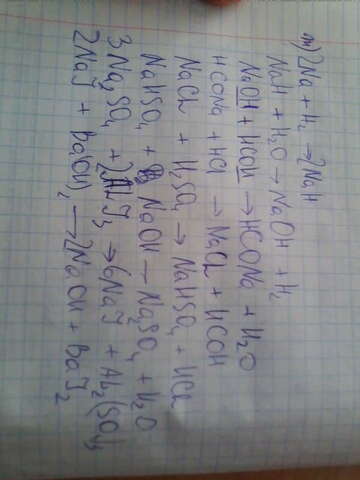 m) 2Na + H₂ → 2NaH
NaH + H₂O → NaOH + H₂
NaOH + HCOH → HCONa + H₂O
HCONa + HCl → NaCl + HCOH
NaCl + H₂SO₄ → NaHSO₄ + HCl
NaHSO₄ + NaOH → Na₂SO₄ + H₂O
3Na₂SO₄ + 2AlJ₃ → 6NaJ + Al₂(SO₄)₃
2NaJ + Ba(OH)₂ → 2NaOH + BaJ₂